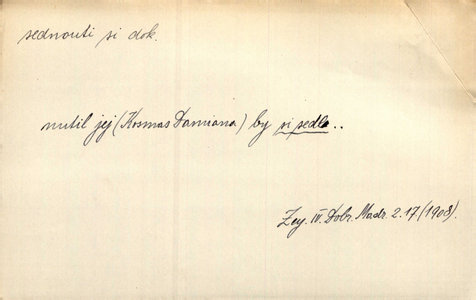 sednouti si dok.
nutil jej (Kosmas Damiana) by si sedl..
Zey. IV. Dobr. Madr. 2. 17 (1908).